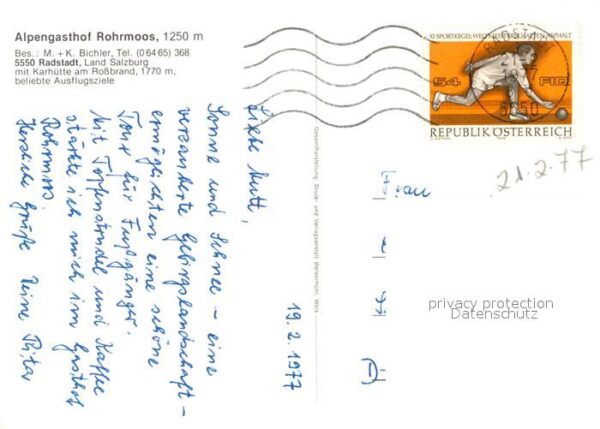 Alpengasthof Rohrmoos, 1250 m
Bes.: M. + K. Bichler, Tel. (0 64 65) 368
5550 Radstadt, Land Salzburg
mit Karhütte am Roßbrand, 1770 m,
beliebte Ausflugsziele
XI. SPORTKEGEL-WELTMEISTERSCHAFTEN-ASPHALT
54 FIQ
REPUBLIK ÖSTERREICH
RADSTADT
5550
21.2.77
Gesamtherstellung: Druck- und Verlagsanstalt Welsermühl, Wels
19. 2. 1977
Liebe Mutti,
Sonne und Schnee – eine
verzauberte Gebirgslandschaft –
ermöglichten eine schöne
Tour für Fußgänger.
Mit Topfenstrudel und Kaffee
stärkte ich mich im Gasthof
Rohrmoos.
Herzliche Grüße Deine
Frau
privacy protection
Datenschutz